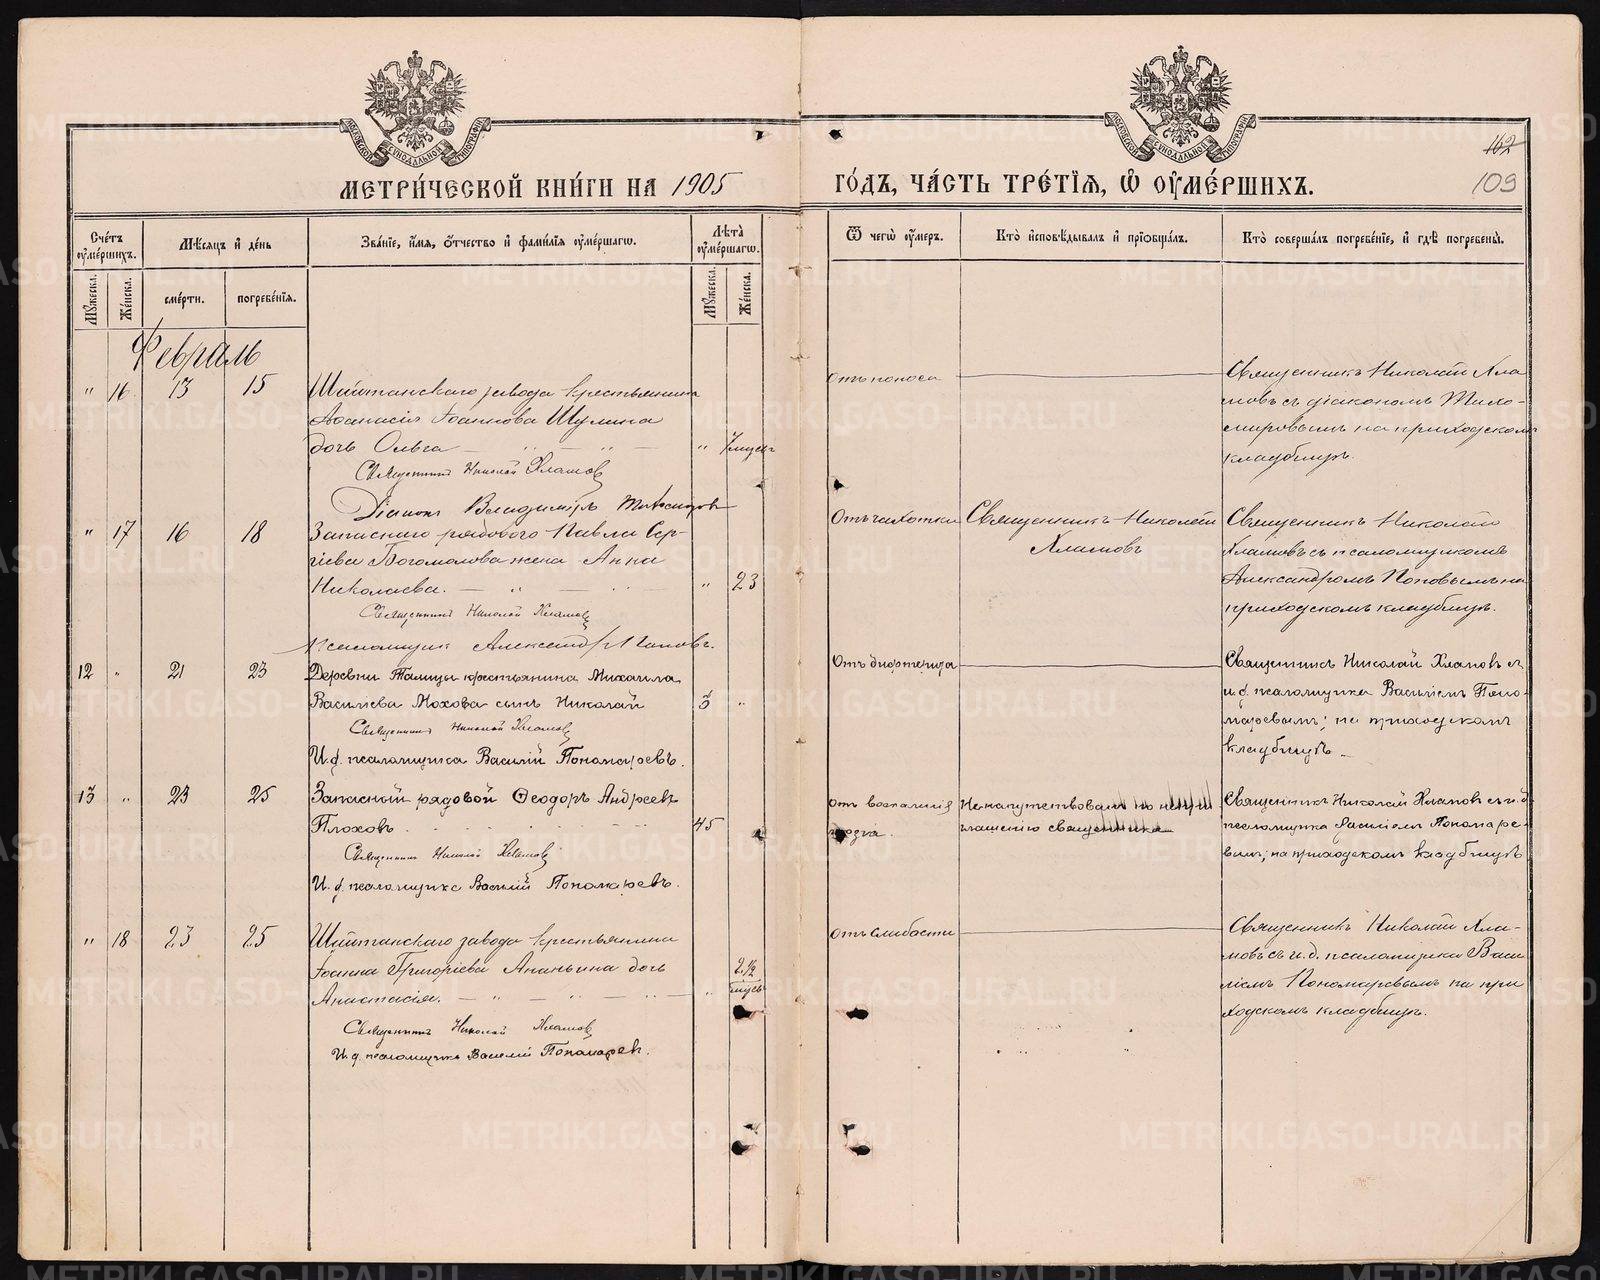 МЕТРИ́ЧЕСКОЙ КНИ́ГИ НА 1905
ГО́ДЪ, ЧА́СТЬ ТРЕ́ТЇѦ, Ѡ҆ ОУ҆МЕ́РШИХЪ.
162
109
Сче́тъ оу҆ме́ршихъ.
Мѣ́сяцъ и҆ де́нь
Зва́нїе, и҆́мя, ѻ҆́тчество и҆ фами́лїя оу҆ме́ршагѡ.
Лѣ́та оу҆ме́ршагѡ.
Ѿ чегѡ̀ оу҆́меръ.
Кто̀ и҆сповѣ́дывалъ и҆ прїѻбща́лъ.
Кто̀ соверша́лъ погребе́нїе, и҆ гдѣ̀ погребены̀.
Мꙋ́жеска.
Же́нска.
сме́рти.
погребе́нїя.
Мꙋ́жеска.
Же́нска.
Февраль
" 16 13 15
Шайтанскаго завода крестьянина
Аѳанасія Іоаннова Шулина
дочь Ольга " 7 мѣсяц
Священникъ Николай Хламовъ
Діаконъ Владиміръ Тихомировъ
Отъ поноса
Священникъ Николай Хла-
мовъ съ діакономъ Тихо-
мировымъ на приходскомъ
кладбищѣ.
" 17 16 18
Запаснаго рядового Павла Сер-
гіева Богомолова жена Анна
Николаева. " 23
Священникъ Николай Хламовъ
Псаломщик Александръ Поповъ.
Отъ чахотки
Священникъ Николай
Хламовъ
Священникъ Николай
Хламовъ съ псаломщикомъ
Александромъ Поповымъ на
приходскомъ кладбищѣ.
12 " 21 23
Деревни Талицы крестьянина Михаила
Васильева Мохова сынъ Николай 3 "
Священникъ Николай Хламовъ
И. д. псаломщика Василій Пономаревъ.
Отъ дифтерита
Священникъ Николай Хламовъ съ
и. д. псаломщика Василіемъ Поно-
маревымъ; на приходскомъ
кладбищѣ
13 " 23 25
Запасный рядовой Ѳеодоръ Андреевъ
Плоховъ 45
Священникъ Николай Хламовъ
И. д. псаломщика Василій Пономаревъ.
Отъ воспаленія
мозга.
Ненапутствованъ по непри-
глашенію священника
Священникъ Николай Хламовъ съ и. д.
псаломщика Василіемъ Пономаре-
вымъ; на приходскомъ кладбищѣ
" 18 23 25
Шайтанскаго завода крестьянина
Іоанна Григоріева Ананьина дочь
Анастасія. " 2 1/2 мѣсяц
Священникъ Николай Хламовъ
И. д. псаломщика Василій Пономарев.
Отъ слабости
Священникъ Николай Хла-
мовъ съ и. д. псаломщика Васи-
ліемъ Пономаревымъ на при-
ходскомъ кладбищѣ.
METRIKI.GASO-URAL.RU